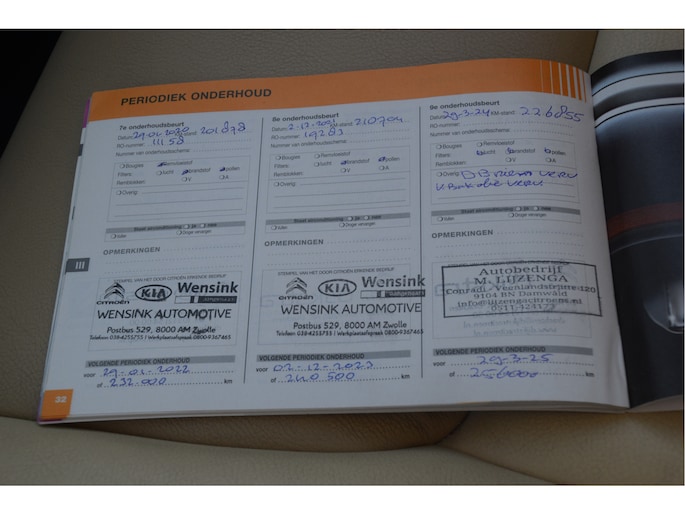 PERIODIEK ONDERHOUD
7e onderhoudsbeurt
Datum: 29-01-2020 KM-stand: 201878
RO-nummer: 11158
Nummer van onderhoudsschema:
Bougies Remvloeistof
Filters: lucht brandstof pollen
Remblokken: V A
Overig:
Staat airconditioning: ja nee
Ruiten Dingie vervangen
OPMERKINGEN
STEMPEL VAN HET DOOR CITROËN ERKENDE BEDRIJF
CITROËN KIA Wensink
WENSINK AUTOMOTIVE
Postbus 529, 8000 AM Zwolle
Telefoon: 038-4255755 | Werkplaatsafspraak 0800-9367465
VOLGENDE PERIODIEK ONDERHOUD
voor 29-01-2022
of 232.000 km
8e onderhoudsbeurt
Datum: 2-12-2021 KM-stand: 210704
RO-nummer: 19283
Nummer van onderhoudsschema:
Bougies Remvloeistof
Filters: lucht brandstof pollen
Remblokken: V A
Overig:
Staat airconditioning: ja nee
OPMERKINGEN
STEMPEL VAN HET DOOR CITROËN ERKENDE BEDRIJF
CITROËN KIA Wensink
WENSINK AUTOMOTIVE
Postbus 529, 8000 AM Zwolle
Telefoon: 038-4255755 | Werkplaatsafspraak 0800-9367465
VOLGENDE PERIODIEK ONDERHOUD
voor 02-12-2023
of 240 500 km
9e onderhoudsbeurt
Datum: 29-3-24 KM-stand: 226855
RO-nummer:
Nummer van onderhoudsschema:
Bougies Remvloeistof
Filters: lucht brandstof pollen
Remblokken: V A
Overig:
Staat airconditioning: ja nee
OPMERKINGEN
Autobedrijf
M. LIJZENGA
Conradi - Veenlandsteate 120
9104 BN Damwâld
info@lijzengacitroen.nl
0511-423173
VOLGENDE PERIODIEK ONDERHOUD
voor 29-3-25
of 256000 km
III
32